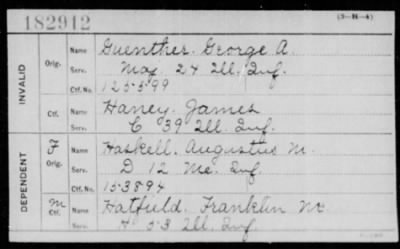 182912
(3-H-4)
INVALID
Orig.
Name Guenther, George A.
Serv. Maj. 24 Ill. Inf.
Ctf. No. 125599
Ctf.
Name Haney, James
Serv. C 39 Ill. Inf.
DEPENDENT
F
Orig.
Name Haskell, Augustus M.
Serv. D 12 Me. Inf.
Ctf. No. 153894
M
Ctf.
Name Hatfield, Franklin Mc
Serv. H 53 Ill. Inf.